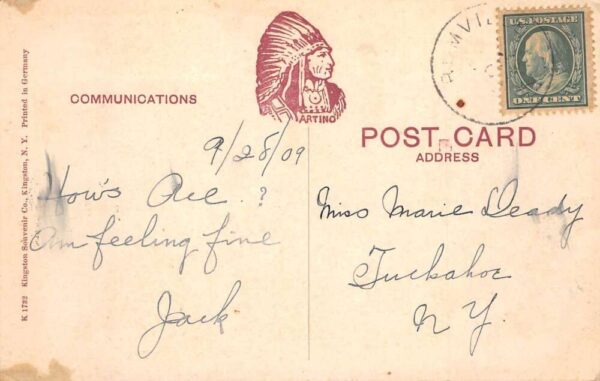 K 1732 Kingston Souvenir Co., Kingston, N. Y. Printed in Germany
COMMUNICATIONS
ARTINO
U.S. POSTAGE
ONE CENT
POST CARD
ADDRESS
9/28/09
How's All ?
Am feeling fine
Jack
Miss Marie Deady
Tuckahoe
N Y.